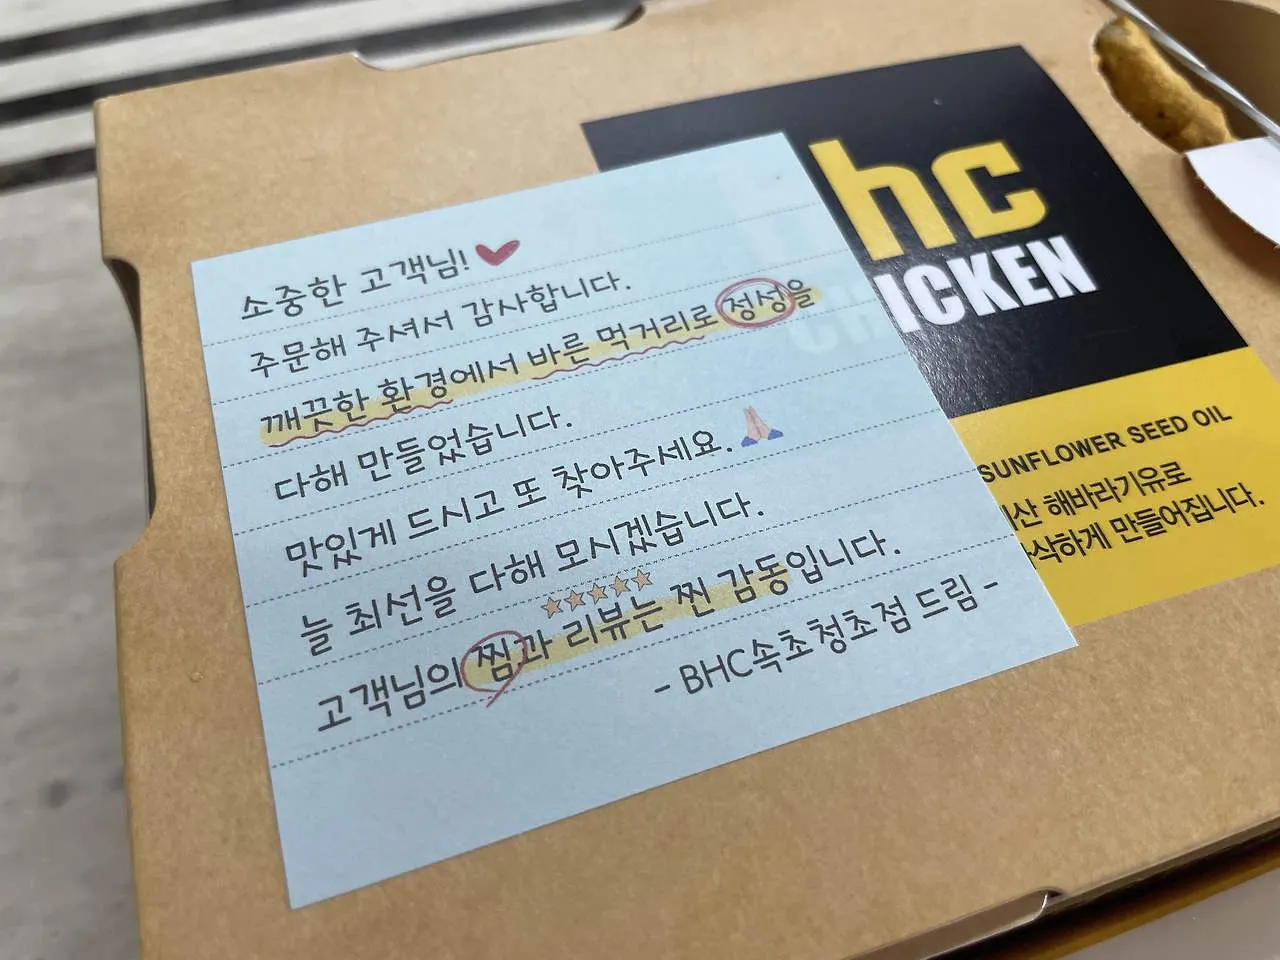 소중한 고객님!
주문해 주셔서 감사합니다.
깨끗한 환경에서 바른 먹거리로 정성을
다해 만들었습니다.
맛있게 드시고 또 찾아주세요.
늘 최선을 다해 모시겠습니다.
고객님의 찜과 리뷰는 찐 감동입니다.
- BHC속초청초점 드림 -
hc
CHICKEN
SUNFLOWER SEED OIL
산 해바라기유로
삭하게 만들어집니다.